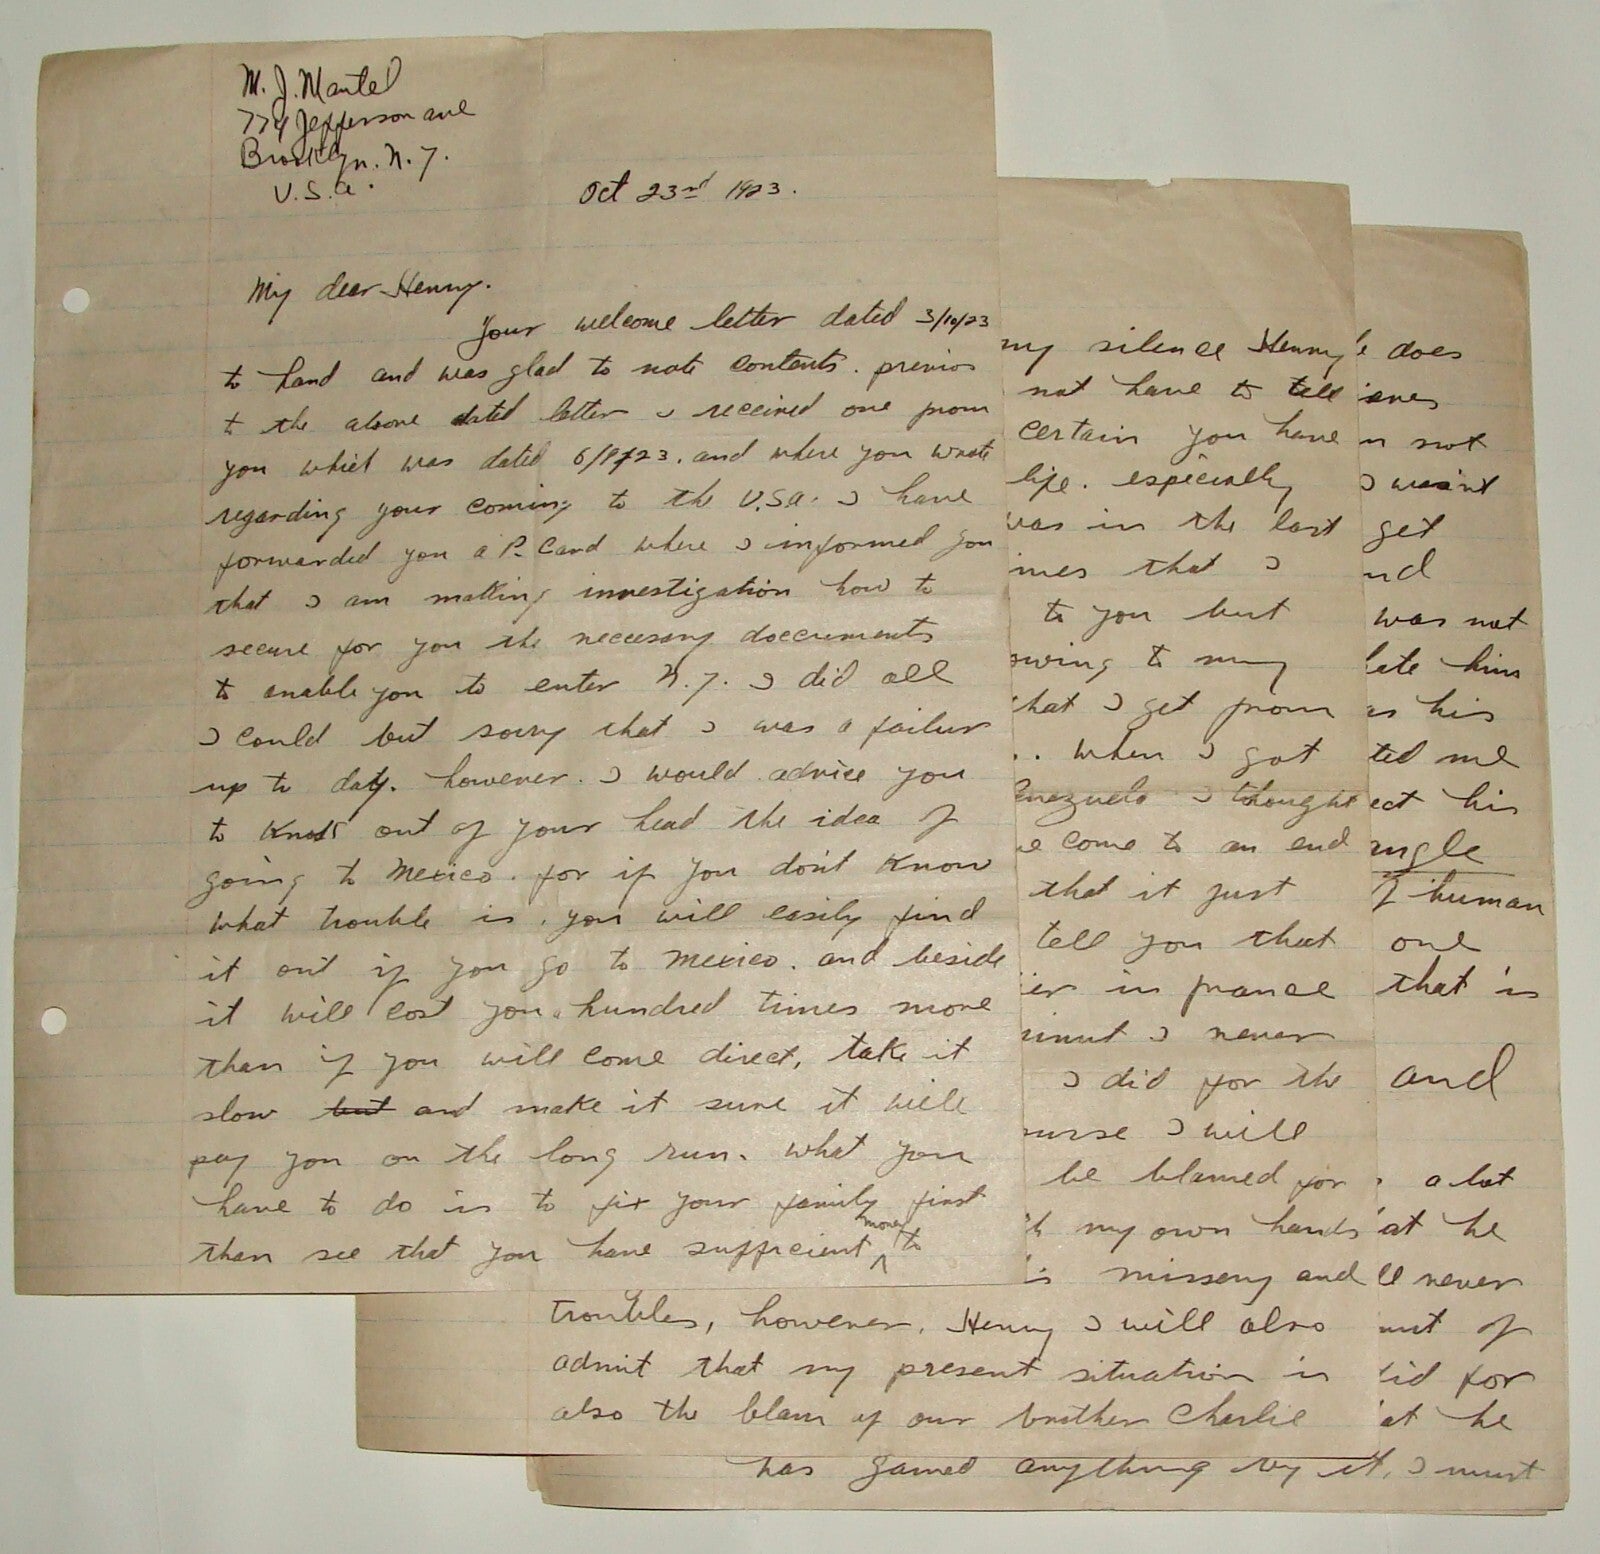 M. J. Mantel
774 Jefferson ave
Brooklyn. N. Y.
U. S. a.
Oct 23rd 1923.
My dear Henny.
Your welcome letter dated 3/10/23
to hand and was glad to note contents. previos
to the above dated letter I received one from
you which was dated 6/9/23. and where you wrote
regarding your coming to the U.S.a. I have
forwarded you a P. Card where I informed you
that I am making investigation how to
secure for you the neccesary doccuments
to enable you to enter N. Y. I did all
I could but sorry that I was a failur
up to day. however. I would advice you
to knock out of your head the idea of
going to Mexico. for if you dont know
what trouble is. you will easily find
it out if you go to Mexico. and beside
it will cost you hundred times more
than if you will come direct, take it
slow but and make it sure it will
pay you on the long run. what you
have to do is to fix your family first
than see that you have sufficient money to
my silence Henny
not have to tell
certain you have
life. especially
was in the last
that I
to you but
owing to my
that I get from
when I got
Venezuela I thought
come to an end
that it just
tell you that
in france
I never
I did for the
I will
be blamed for
my own hands
missery and
troubles, however, Henny I will also
admit that my present situation is
also the blam of our brother Charlie
does
not
I wasnt
get
was not
him
his
me
his
of human
one
that is
and
a lot
he
never
of
for
he
has gained anything by it, I must